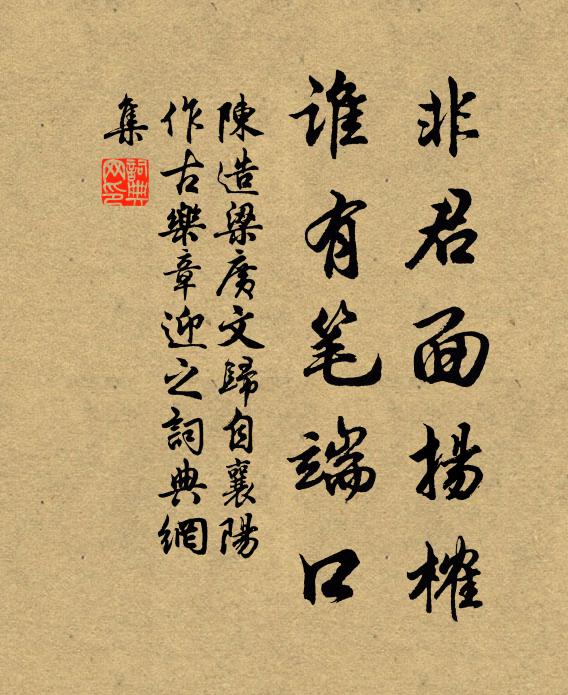 非君面揚榷
谁有笔端口
陳造梁廣文歸自襄陽
作古樂章迎之詞典網
集
詞典
网印